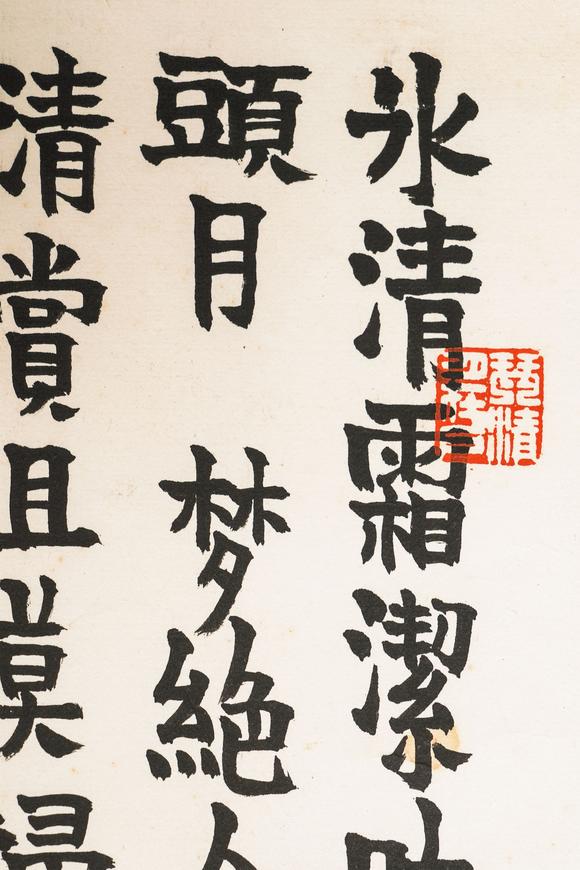 氷清霜潔
頭月 梦絶
清賞且莫